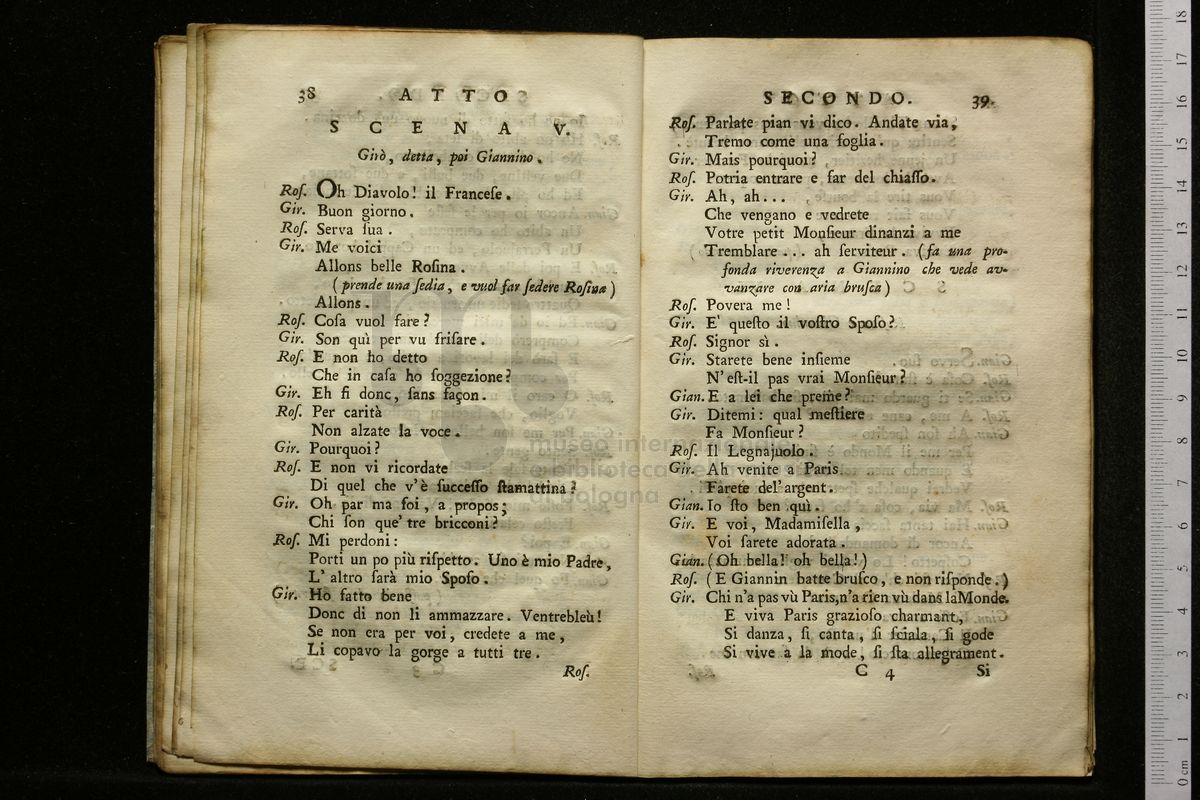 38 ATTO
SCENA V.
Girò, detta, poi Giannino.
Roſ. Oh Diavolo! il Franceſe.
Gir. Buon giorno.
Roſ. Serva ſua.
Gir. Me voici
Allons belle Roſina.
(prende una ſedia, e vuol far ſedere Roſina)
Allons.
Roſ. Coſa vuol fare?
Gir. Son quì per vu friſare.
Roſ. E non ho detto
Che in caſa ho ſoggezione?
Gir. Eh fi donc, ſans façon.
Roſ. Per carità
Non alzate la voce.
Gir. Pourquoi?
Roſ. E non vi ricordate
Di quel che v'è ſucceſſo ſtamattina?
Gir. Oh par ma foi, a propos;
Chi ſon que' tre bricconi?
Roſ. Mi perdoni:
Porti un po più riſpetto. Uno è mio Padre,
L' altro ſarà mio Spoſo.
Gir. Ho fatto bene
Donc di non li ammazzare. Ventrebleù!
Se non era per voi, credete a me,
Li copavo la gorge a tutti tre.
Roſ.
SECONDO. 39
Roſ. Parlate pian vi dico. Andate via,
Tremo come una foglia.
Gir. Mais pourquoi?
Roſ. Potria entrare e far del chiaſſo.
Gir. Ah, ah...
Che vengano e vedrete
Votre petit Monſieur dinanzi a me
Tremblare... ah ſerviteur. (fa una pro-
fonda riverenza a Giannino che vede av-
vanzare con aria bruſca)
Roſ. Povera me!
Gir. E' queſto il voſtro Spoſo?
Roſ. Signor sì.
Gir. Starete bene inſieme
N'eſt-il pas vrai Monſieur?
Gian. E a lei che preme?
Gir. Ditemi: qual meſtiere
Fa Monſieur?
Roſ. Il Legnajuolo.
Gir. Ah venite a Paris
Farete del'argent.
Gian. Io ſto ben quì.
Gir. E voi, Madamiſella,
Voi ſarete adorata.
Gian. (Oh bella! oh bella!)
Roſ. (E Giannin batte bruſco, e non riſponde.)
Gir. Chi n'a pas vù Paris,n'a rien vù dans laMonde.
E viva Paris grazioſo charmant,
Si danza, ſi canta, ſi ſciala, ſi gode
Si vive a la mode, ſi ſta allegrament.
C 4 Si
museo internazionale
e biblioteca
bologna
0 cm 1 2 3 4 5 6 7 8 9 10 11 12 13 14 15 16 17 18